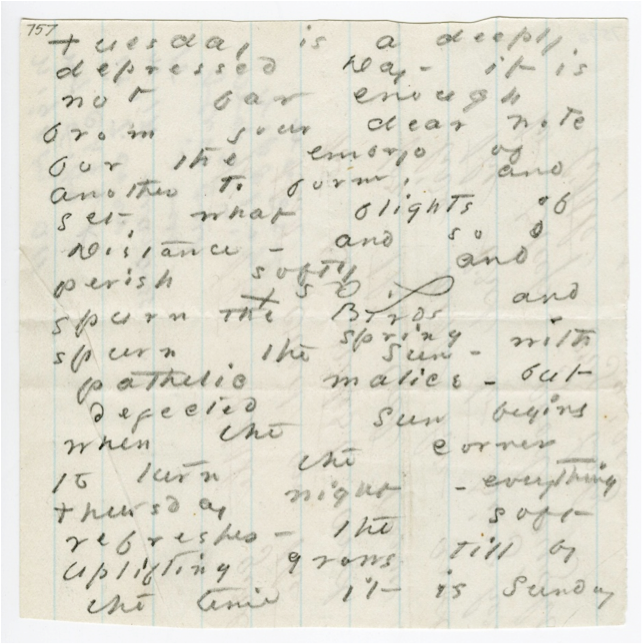 757
Tuesday is a deeply
depressed Day - it is
not far enough
from your dear note
for the embryo of
another to form, and
yet what flights of
Distance - and so I
perish softly and
spurn the Birds and
spring
spurn the Sun - with
pathetic malice - but
dejected
when the Sun begins
to turn the corner
Thursday night - everything
refreshes - the soft
uplifting grows till by
the time it is Sunday